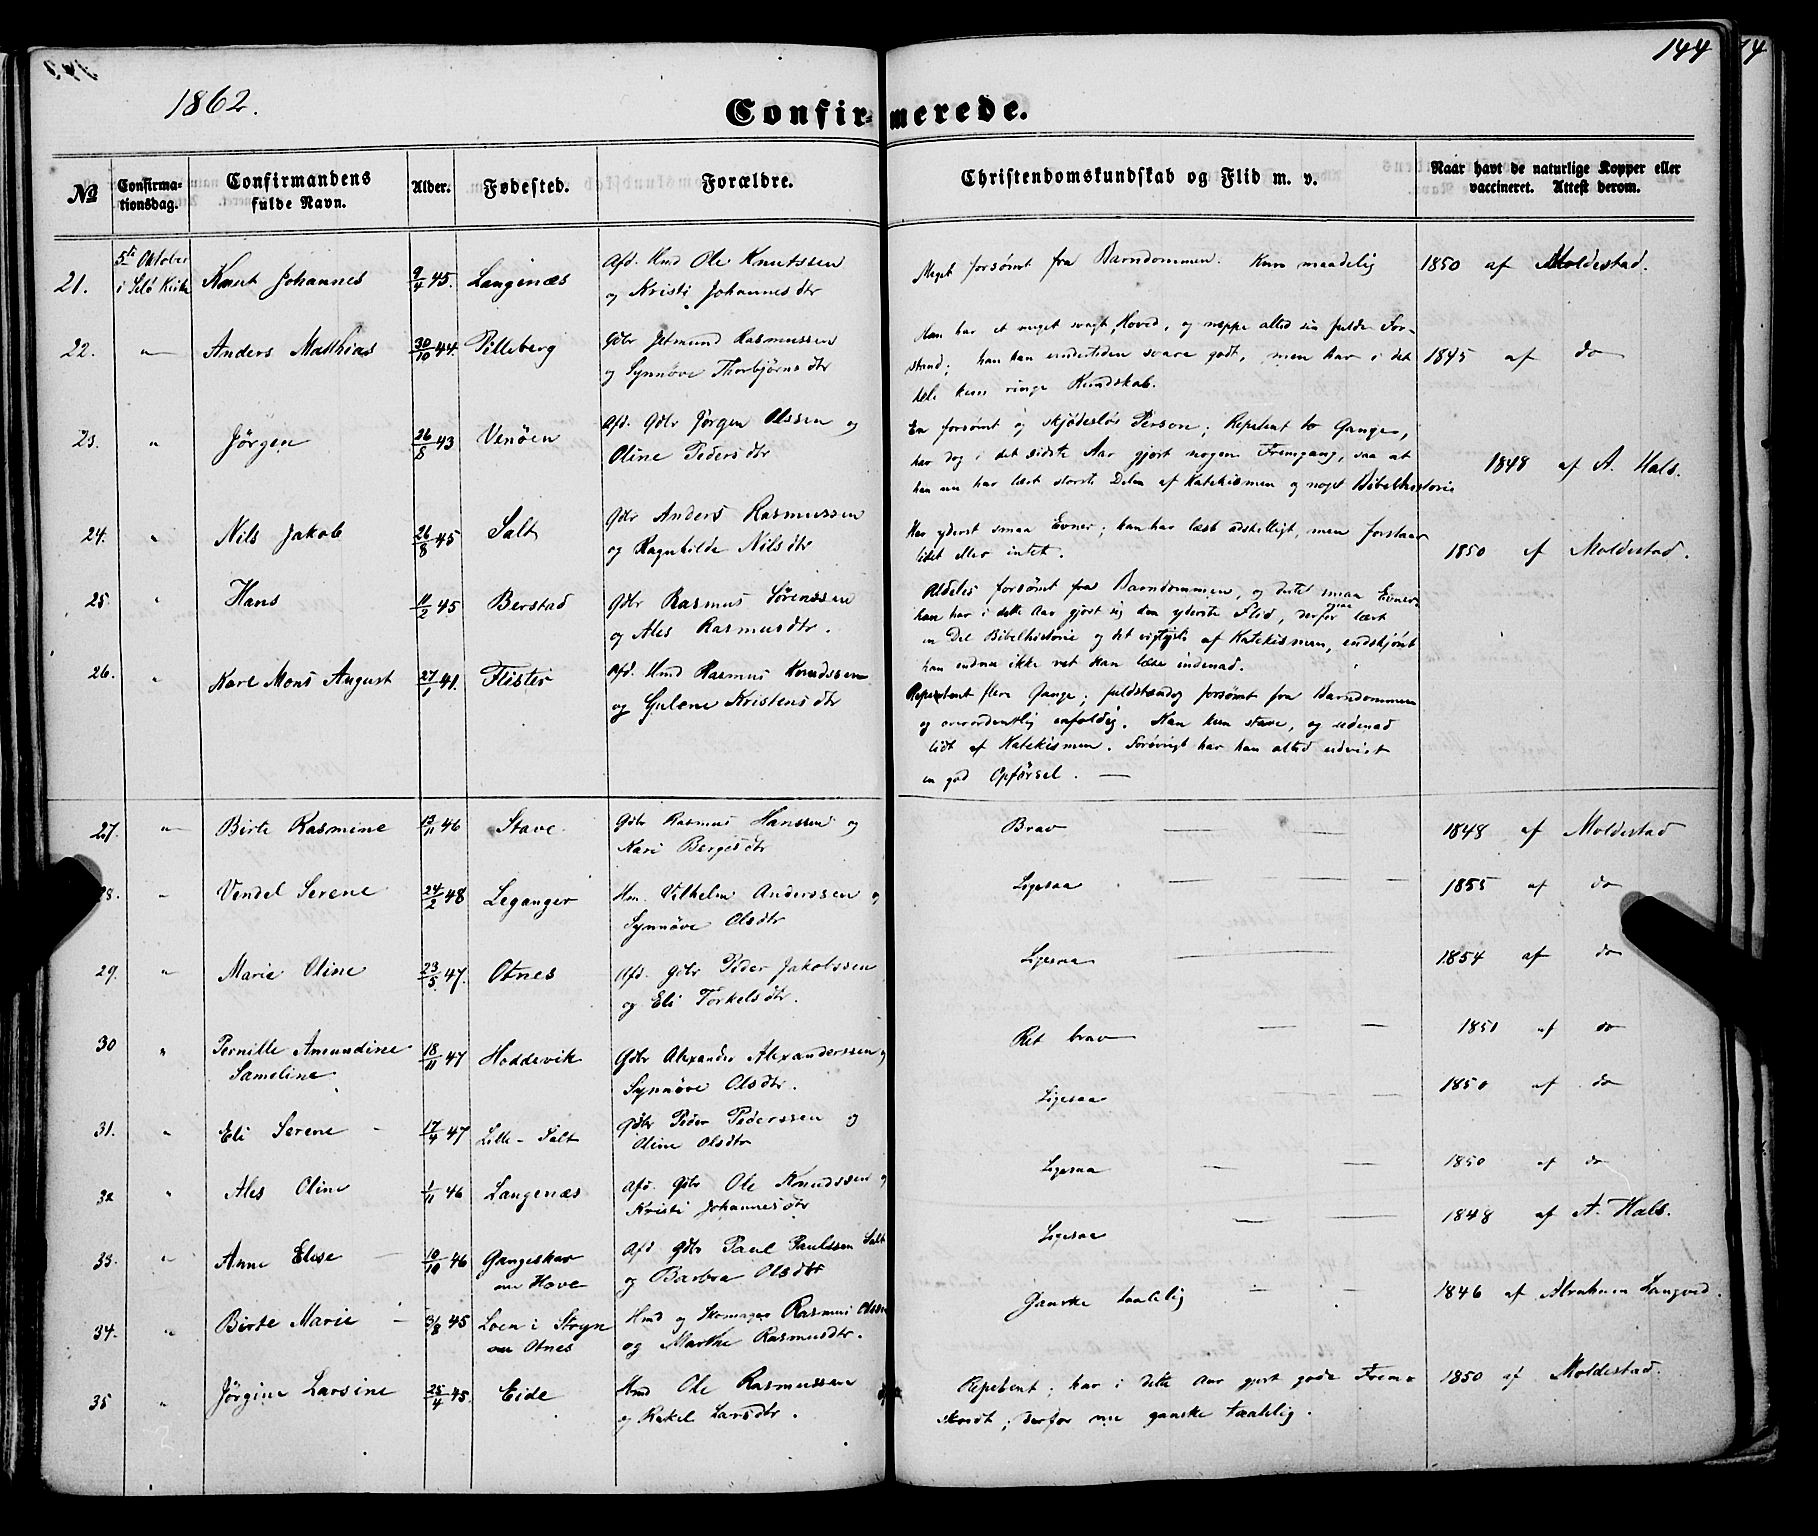 144
1862.
Confirmerede.
No
Confirma-
tionsdag.
Confirmandens
fulde Navn.
Alder.
Fødested.
Forældre.
Christendomskundskab og Flid m. v.
Naar havt de naturlige Kopper eller
vaccineret. Attest derom.
21. 5te Oktober i Selø Kirke Knut Johannes 9/4 45. Langenæs Afd. Hmd Ole Knutssen
og Kristi Johannesdtr
Meget forsømt fra Barndommen. Kun maadelig 1850 af Moldestad.
22. " Anders Matthias 30/10 44. Pilleberg Gdbr Jetmund Rasmussen
og Synnöve Thorbjørnsdtr
Han har et meget svagt Hoved, og neppe altid sin fulde For-
stand; han kan undertiden svare godt, men har i det
hele kun ringe Kundskab.
1845 af do
23. " Jörgen 26/8 43 Venöen Afd. Gdbr Jörgen Olssen og
Oline Pedersdtr
En forsømt og skjödeslös Person; Repetent to Gange,
har dog i det sidste Aar gjort nogen Fremgang, saa at
han nu har lært største Delen af Katekismen og noget Bibelhistorie
1848 af A. Hals.
24. " Nils Jakob 26/8 45 Salt Gdbr Anders Rasmussen
og Ragnhilde Nilsdtr
Har yderst smaa Evner; han har læst adskilligt, men forstaar
lidet eller intet.
1850 af Moldestad.
25. " Hans 11/2 45 Berstad Gdbr Rasmus Sörenssen
og Ales Rasmusdtr.
Aldeles forsømt fra Barndommen, og dertil smaa Evner;
han har i dette Aar gjort sig den yderste Flid, derfor lært
en Del Bibelhistorie og det vigtigste af Katekismen, endskjønt
han endnu ikke ret kan læse indenad.
26. " Karl Mons August 27/1 41. Flister Afd. Hmd Rasmus Knudssen
og Gulene Kristensdtr
Repetent flere Gange; fuldstændig forsømt fra Barndommen
og overordentlig enfoldig. Kan kun stave, og udenad
lidt af Katekismen. Forövrigt har han altid udvist
en god Opførsel.
27. " Birte Rasmine 13/11 46 Stave Gdbr Rasmus Hanssen og
Kari Bergesdtr
Brav 1848 af Moldestad
28. " Vendel Serene 24/2 48 Leganger Hm. Vilhelm Anderssen og
Synnöve Olsdtr
Ligesaa 1855 af do
29. " Marie Oline 23/5 47. Otnes Afd. Gdbr Peder Jakobssen
og Eli Torkelsdtr.
Ligesaa 1854 af do
30 " Pernille Amundine
Sameline 18/11 47 Hoddevik Gdbr Alexander Alexanderssen og
Synnöve Olsdtr.
Ret brav 1850 af do
31. " Eli Serene 17/4 47 Lille-Salt Gdbr Peder Pederssen og
Oline Olsdtr
Ligesaa 1850 af do
32 " Ales Oline 1/11 46 Langenæs Afd. Gdbr Ole Knudssen og
Kristi Johannesdtr
Ligesaa 1850 af do
33. " Anne Elise 10/10 46 Gangeskar
nu Hove Afd Gdbr Paul Paulssen Salt
og Barbra Olsdtr
Ligesaa 1848 af A. Hals.
34. " Birte Marie 3/8 45 Loen i Stryn
nu Otnes Hmd og Skomager Rasmus Olssen
og Marthe Rasmusdtr.
Ganske taalelig 1846 af Abraham
35 " Jörgine Larsine 25/4 45. Eide Hmd Ole Rasmussen
og Rakel Larsdtr.
Repetent; har i dette Aar gjort gode Frem-
skridt; derfor nu ganske taalelig.
1850 af Moldestad.